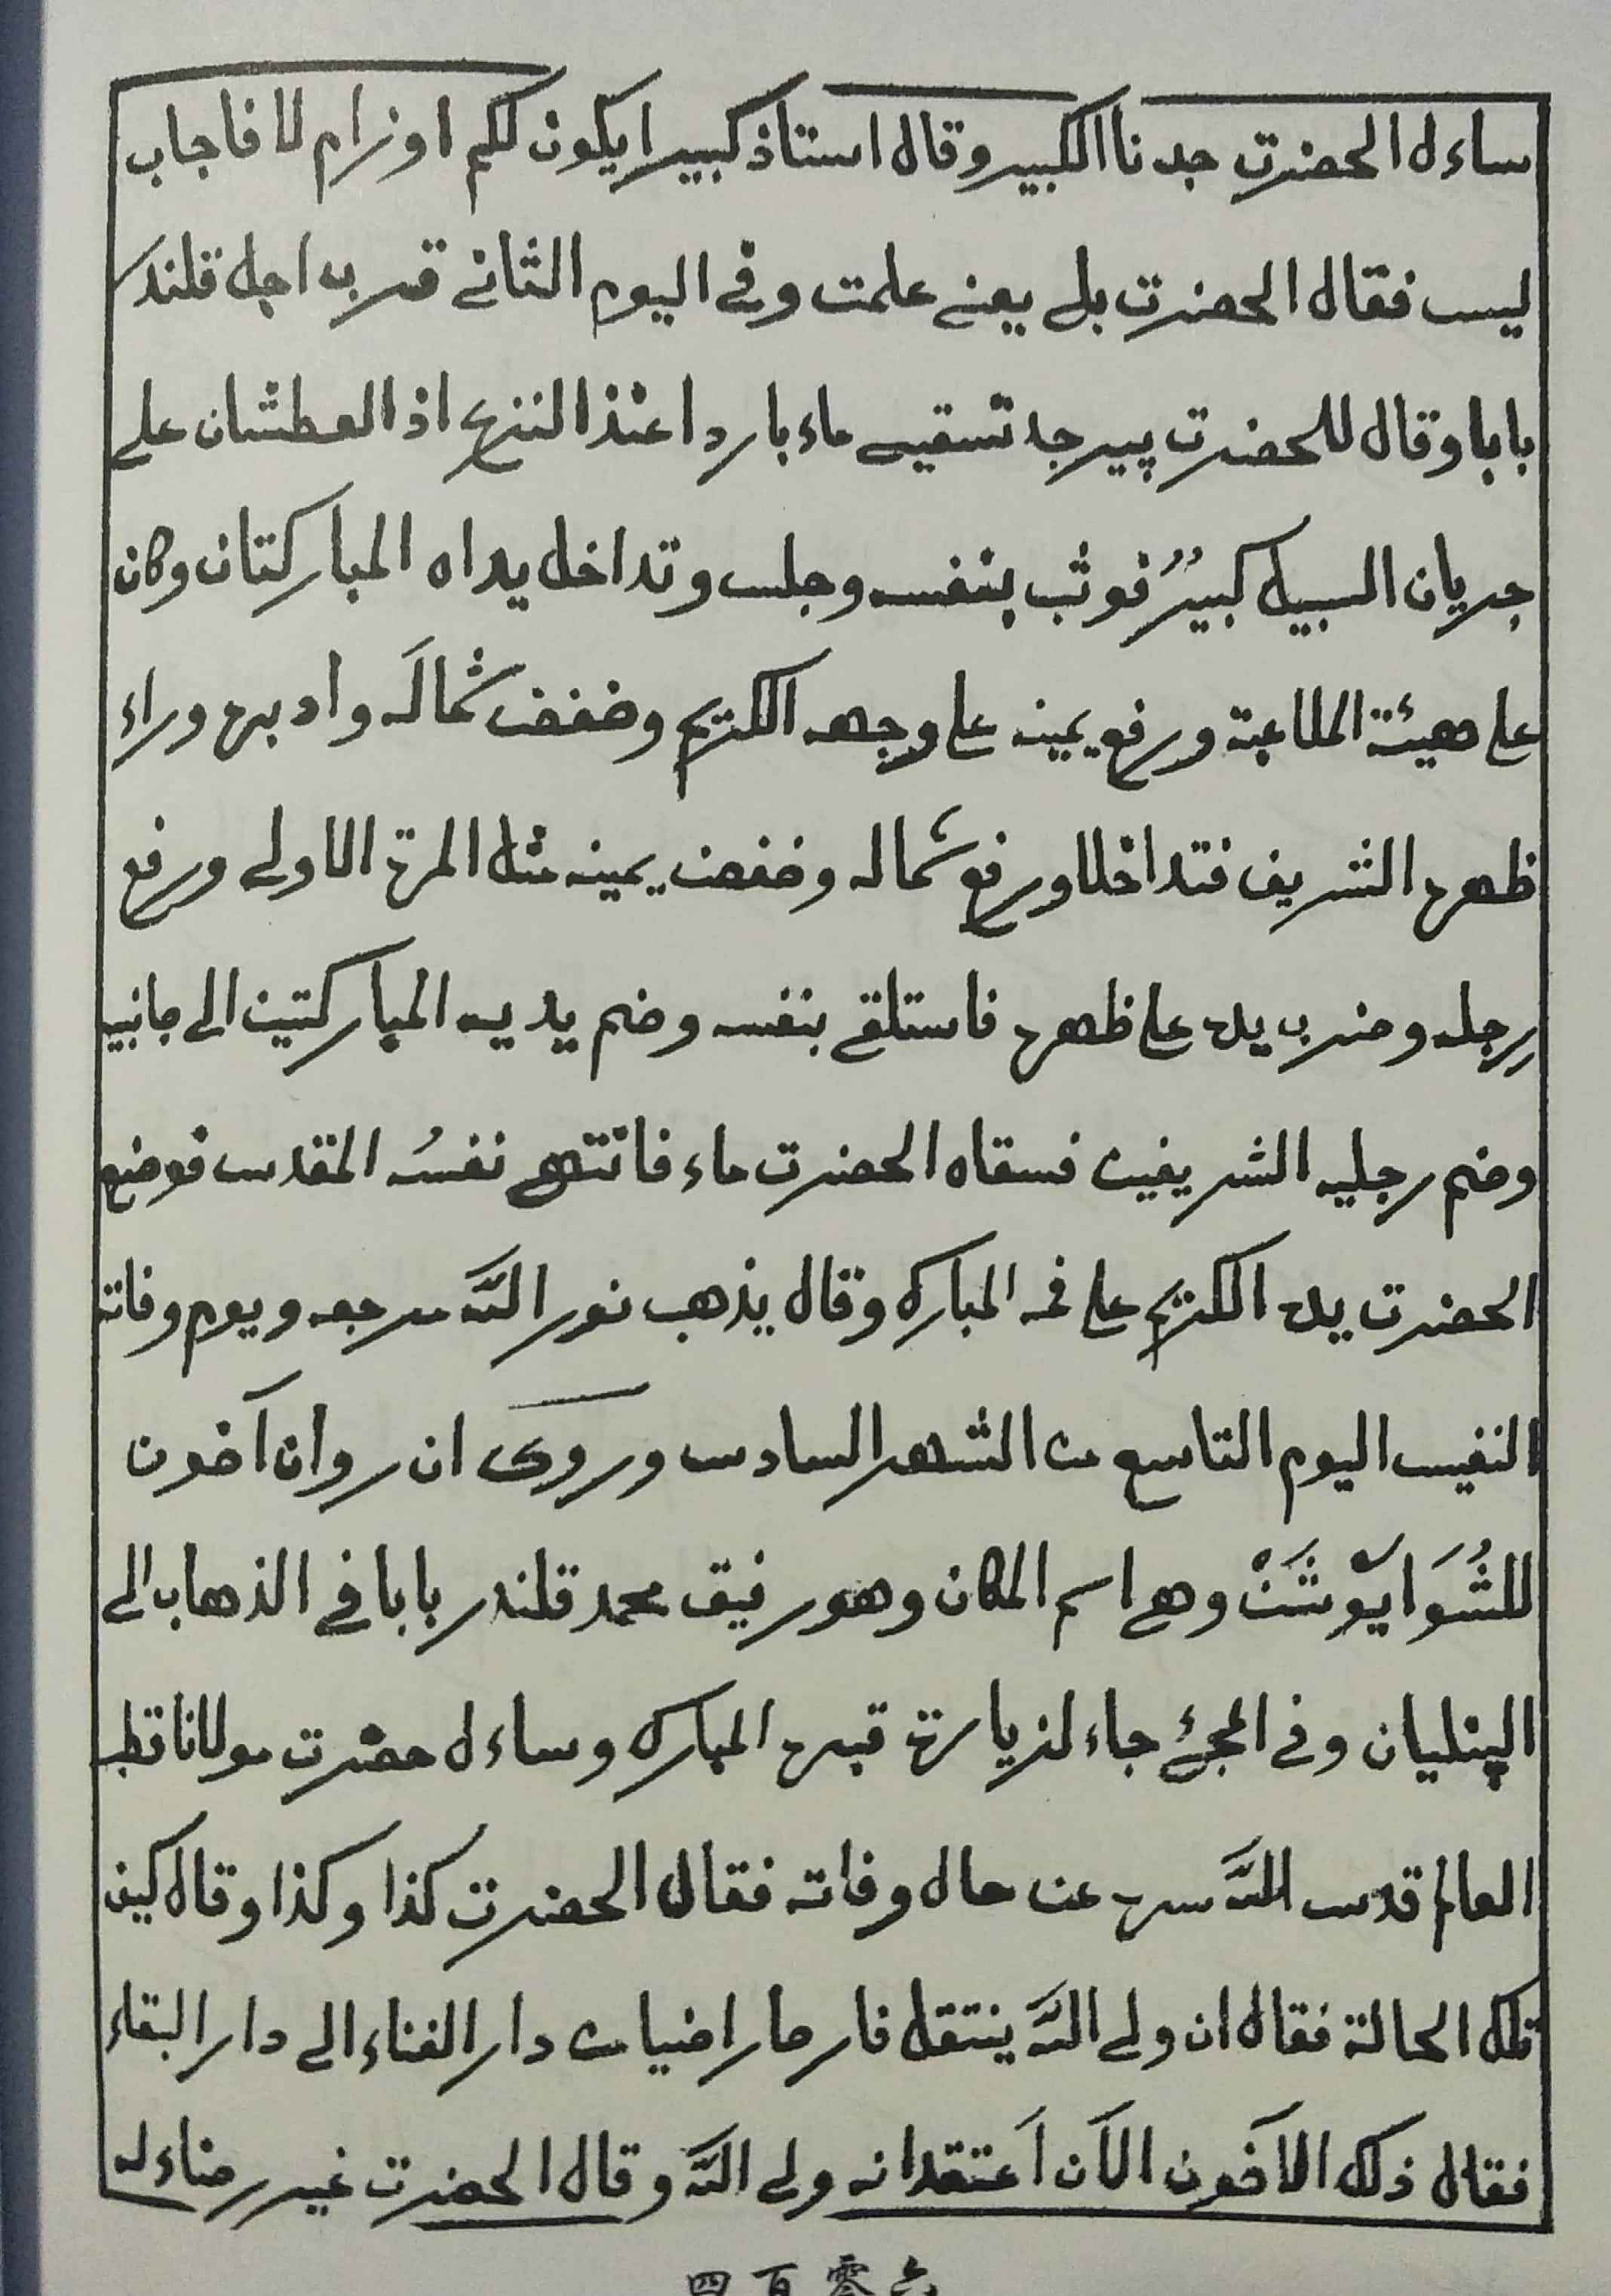 ساءل الحضرت جدنا الكبير وقال استاذ كبير ايكون لكم اوزرام لا فاجاب
ليس فقال الحضرت بلى يعنى علمت وفى اليوم الثانى قرب اجل قلندر
بابا وقال للحضرت پير جد تسقيے ماء باردا عند النزع اذ العطشان على
جريان السبيل كبيرٌ فوثب بنفسه وجلس وتداخل يداه المباركتان وكان
على هيئة الملاعبة ورفع يمينه على وجهه الكريم وخفض شماله وادبره وراء
ظهره الشريف فتداخلا ورفع شماله وخفض يمينه مثل المرة الاولى ورفع
رجله وضرب يده على ظهره فاستلقى بنفسه وضم يديه المباركتين الى جانبيه
وضم رجليه الشريفين فسقاه الحضرت ماء فانتهى نفسُه المقدس فوضع
الحضرت يده الكريم على فمه المبارك وقال يذهب نور اللّه مرجعه ويوم وفاته
النفيس اليوم التاسع من الشهر السادس وروى ان روان آخون
للشُوَايَوْشَنْ وهى اسم المكان وهو رفيق محمد قلندر بابا فى الذهاب الى
الپنليان وفى المجئ جاء لزيارة قبره المبارك وساءل حضرت مولانا قطب
العالم قدس اللّه سره عن حال وفاته فقال الحضرت كذا وكذا وقال كيف
تلك الحالة فقال ان ولى اللّه ينتقل فارحا راضيا من دار الفناء الى دار البقاء
فقال ذلك الآخون الآن اَعتقد انه ولى اللّه وقال الحضرت غير رضاء له
四百零六